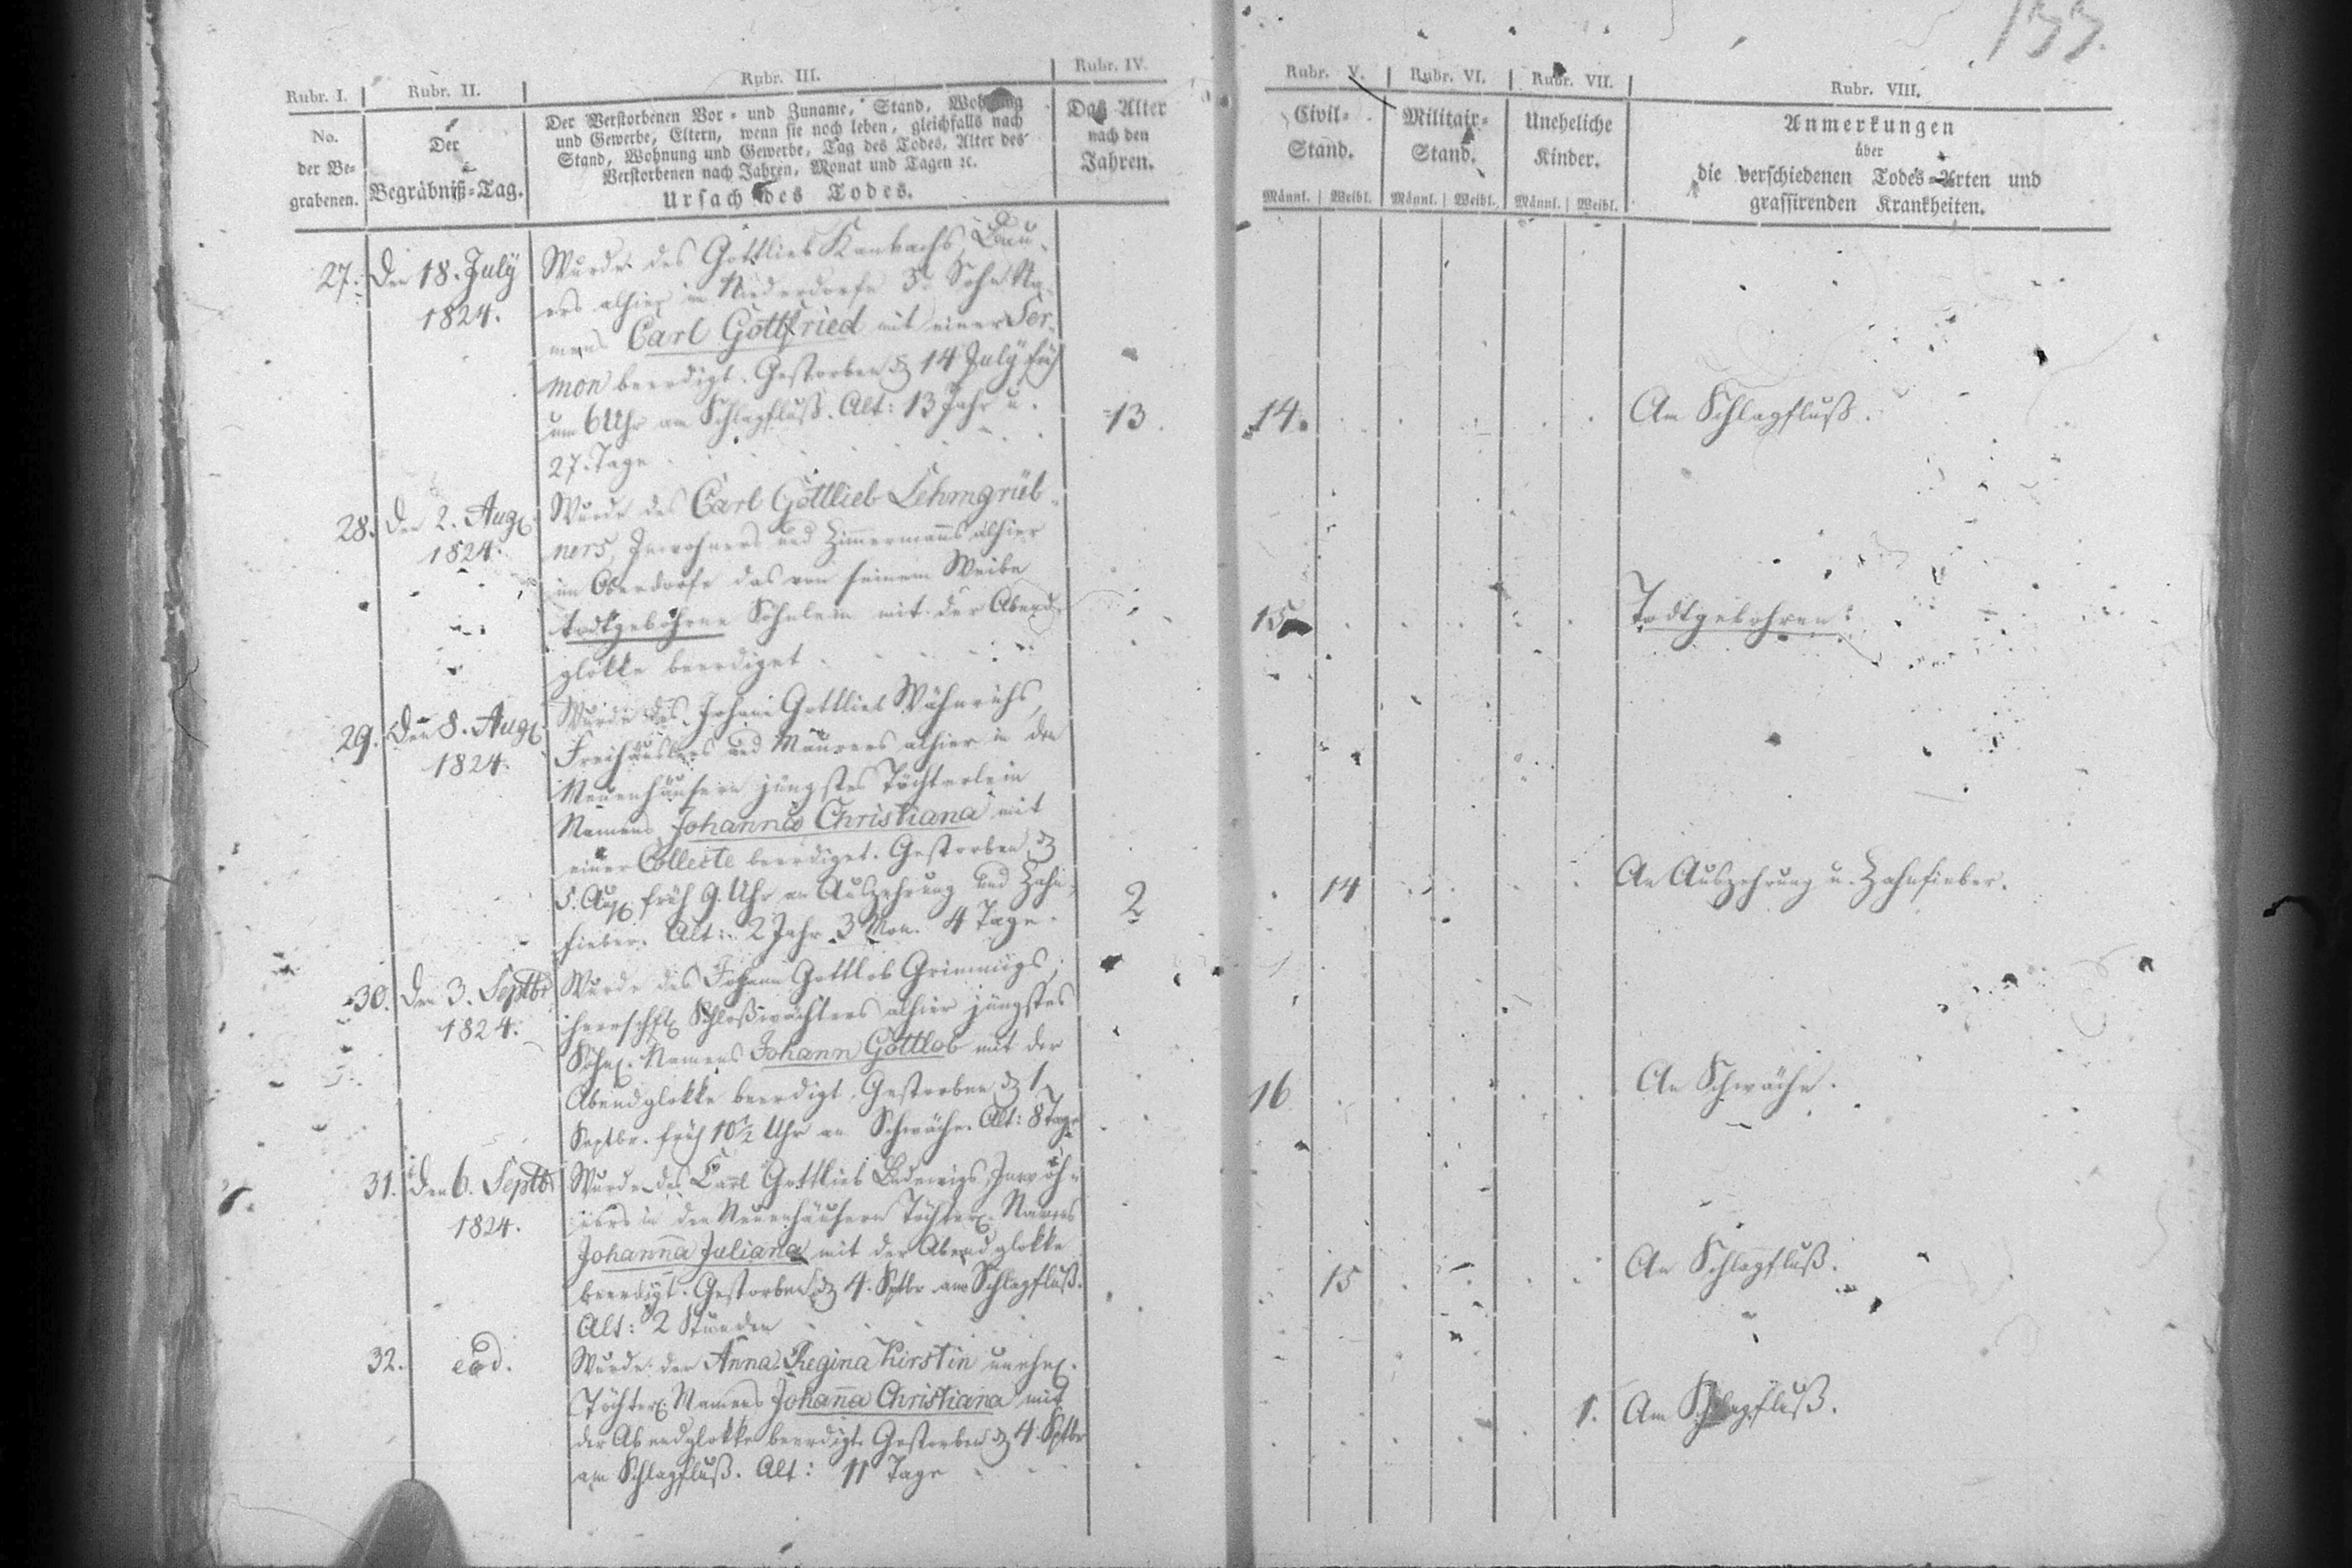 133.
Rubr. I. Rubr. II. Rubr. III. Rubr. IV. Rubr. V. Rubr. VI. Rubr. VII. Rubr. VIII.
No.
der Be-
grabenen.
Der
Begräbniß-Tag.
Der Verstorbenen Vor- und Zuname, Stand, Wohnung
und Gewerbe, Eltern, wenn sie noch leben, gleichfalls nach
Stand, Wohnung und Gewerbe, Tag des Todes, Alter des
Verstorbenen nach Jahren, Monat und Tagen ꝛc.
Ursach des Todes.
Das Alter
nach den
Jahren.
Civil-
Stand.
Männl. Weibl.
Militair-
Stand.
Männl. Weibl.
Uneheliche
Kinder.
Männl. Weibl.
Anmerkungen
über
die verschiedenen Todes-Arten und
grassirenden Krankheiten.
27. Den 18. July
1824.
Wurde des Gottlieb Kanbachs, Bau-
ers alhier in Niederdorfe 3r Sohn Na-
mens Carl Gottfried mit einer Ser-
mon beerdigt. Gestorben d 14 July früh
um 6 Uhr am Schlagfluß. Alt: 13 Jahr u.
27. Tage
13. 14. Am Schlagfluß.
28. Den 2. Aug.
1824.
Wurde des Carl Gottlieb Lehmgrüb-
ners, Inwohners und Zimmermanns alhier
im Oberdorfe das von seinem Weibe
todtgebohrne Söhnlein mit der Abend-
glokke beerdiget
15 Todtgebohren.
29. Den 8. Aug.
1824.
Wurde des Johann Gottlieb Wähnrichs,
Freihäuslers und Maurers alhier in den
Neuenhäusern jüngstes Töchterlein
Namens Johanna Christiana mit
einer Collecte beerdiget. Gestorben d
5. Aug. früh 9. Uhr an Auszehrung und Zahn-
fieber. Alt: 2 Jahr 3 Mon. 4 Tage.
2 14 An Auszehrung u. Zahnfieber.
30. Den 3. Septbr
1824.
Wurde des Johann Gottlob Grimmigs,
herrschftl. Schloßwächters alhier jüngstes
Söhnl. Namens Johann Gottlob mit der
Abendglokke beerdigt. Gestorben d 1
Septbr. früh 10½ Uhr an Schwäche. Alt: 8 Tage
16 An Schwäche.
31. Den 6. Septbr
1824.
Wurde des Carl Gottlieb Ludewigs, Inwoh-
ners in den Neuenhäusern Töchterl. Namens
Johanna Juliana mit der Abendglokke
beerdigt. Gestorben d 4. Sptbr am Schlagfluß.
Alt: 2 Stunden
15 An Schlagfluß.
32. eod.
Wurde der Anna Regina Kirstin unehel.
Töchterl. Namens Johanna Christiana mit
der Abendglokke beerdigt. Gestorben d 4. Sptbr
am Schlagfluß. Alt: 11 Tage
1. Am Schlagfluß.